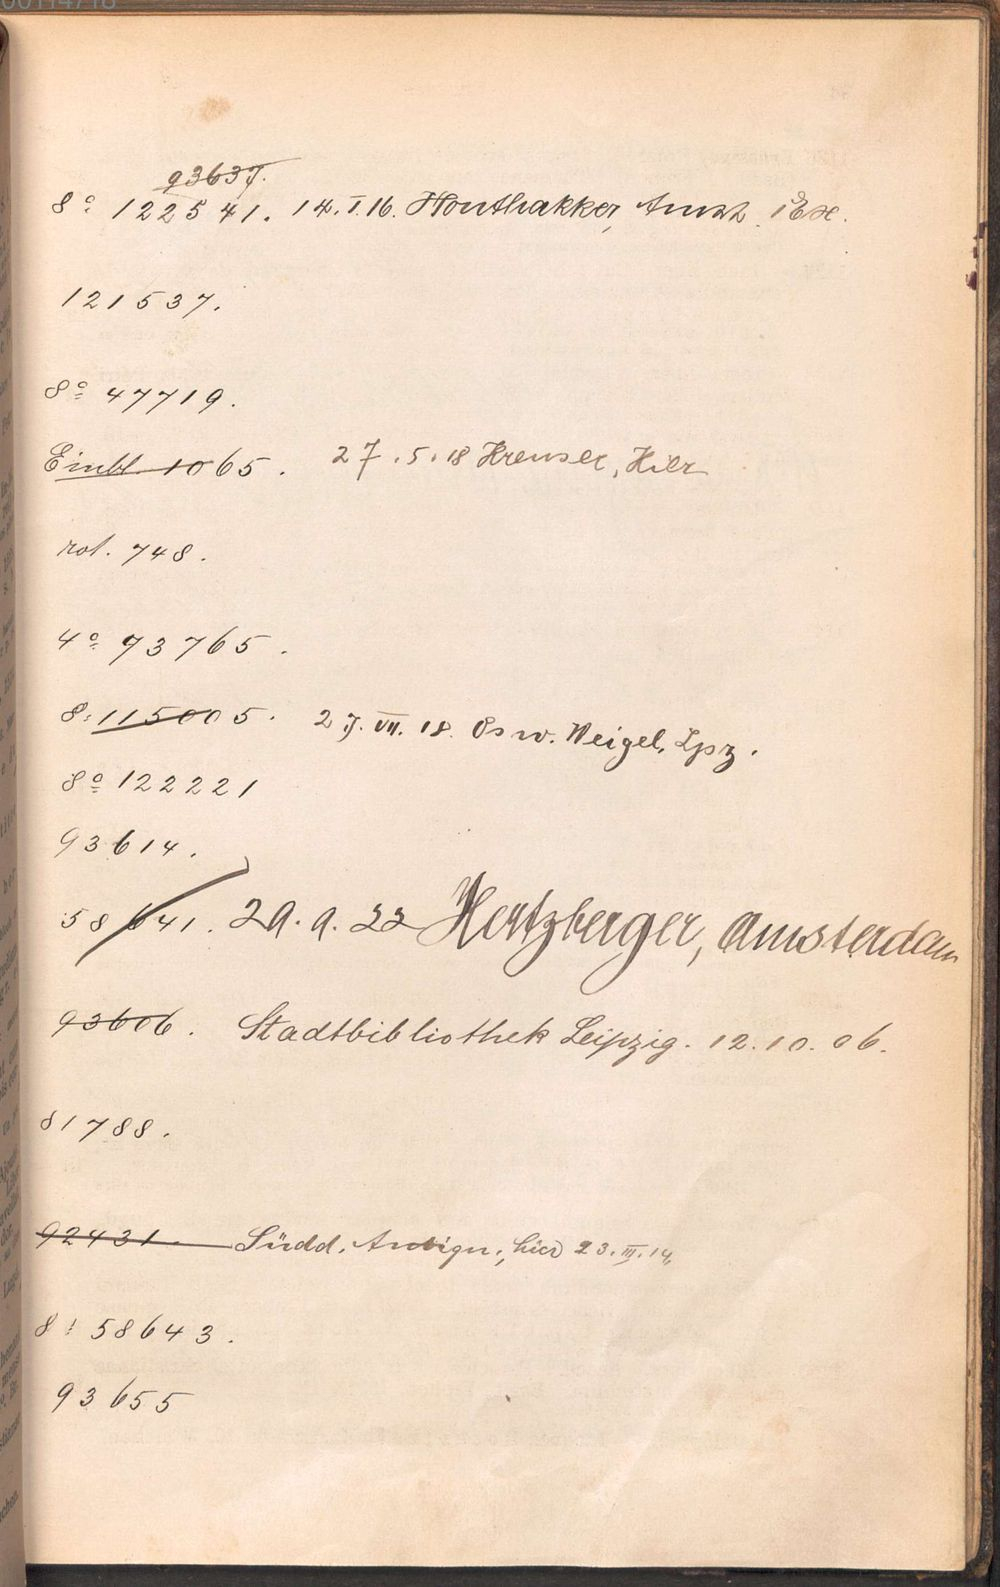 93637.
8° 122541. 14.I.16. Houthakker, Amst. 1 Ex.
121537.
8° 47719.
Einbl. 1065. 27.5.18
rot. 748.
4° 73765.
8° 115005. 27.VII.18. Osw. Weigel, Lpz.
8° 122221
93614.
58641. 29.9.22 Hertzberger, Amsterdam
93606. Stadtbibliothek Leipzig. 12.10.06.
81788.
92431. Südd. Antiqu., hier 23.III.14.
8° 58643.
93655